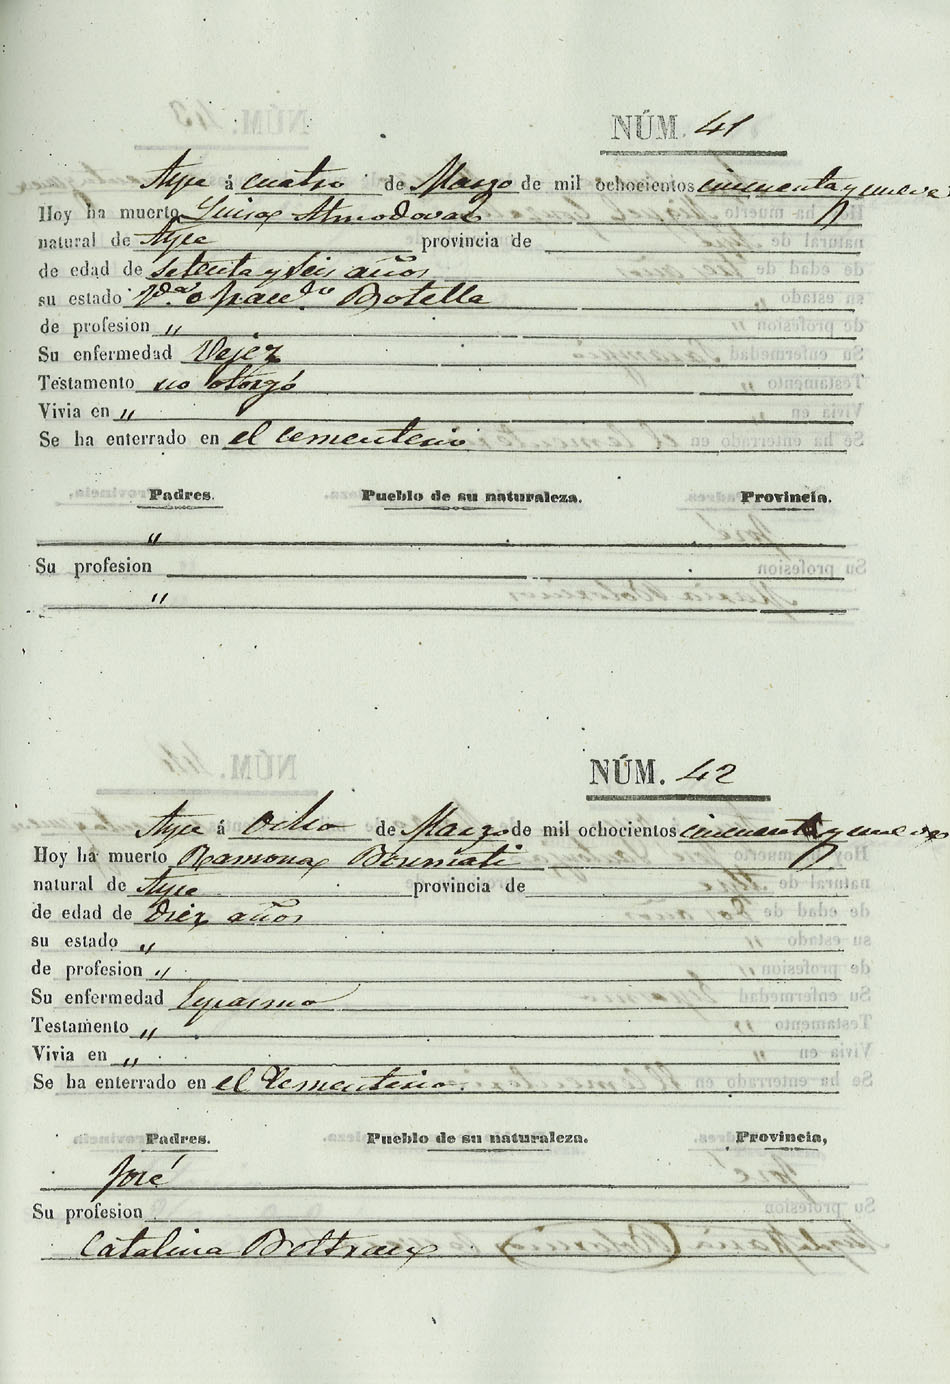 NÚM. 41
Aspe á cuatro de Marzo de mil ochocientos cincuenta y nueve
Hoy ha muerto Luisa Almodovar
natural de Aspe provincia de
de edad de setenta y seis años
su estado Vda. de Franco. Botella
de profesion "
Su enfermedad Vejez
Testamento no otorgó
Vivia en "
Se ha enterrado en el cementerio
Padres. Pueblo de su naturaleza. Provincia.
"
Su profesion
"
NÚM. 42
Aspe á Ocho de Marzo de mil ochocientos cincuenta y nueve
Hoy ha muerto Ramona Bonmati
natural de Aspe provincia de
de edad de Diez años
su estado "
de profesion "
Su enfermedad Espasmo
Testamento "
Vivia en "
Se ha enterrado en el Cementerio.
Padres. Pueblo de su naturaleza. Provincia,
José
Su profesion
Catalina Beltran